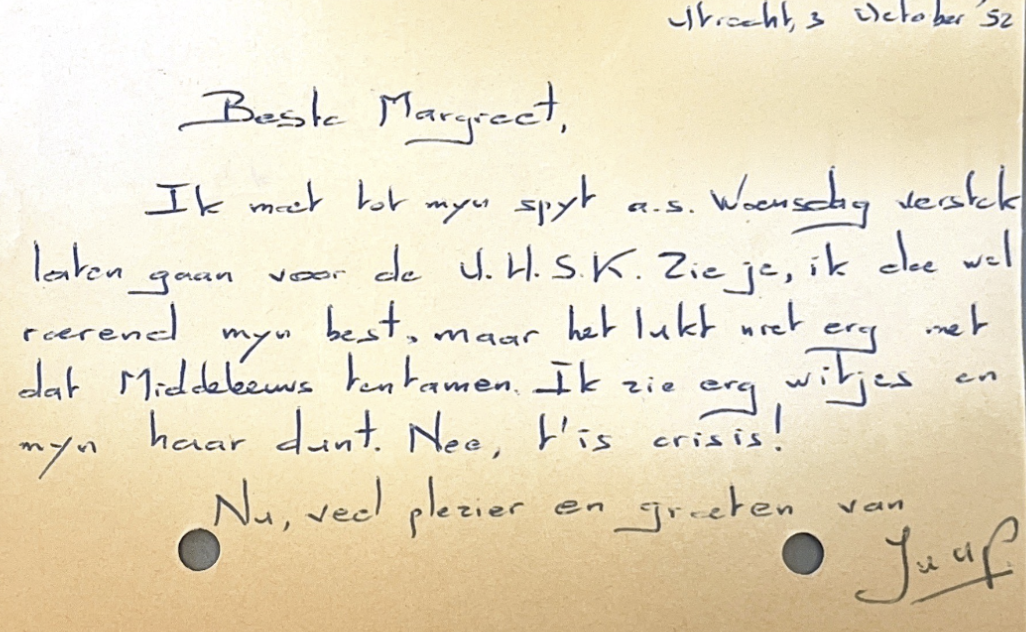 Utrecht, 3 October '52
Beste Margreet,
Ik moet tot myn spyt a.s. Woensdag verstek
laten gaan voor de U.H.S.K. Zie je, ik doe wel
roerend myn best, maar het lukt niet erg met
dat Middeleeuws tentamen. Ik zie erg witjes en
myn haar dunt. Nee, t'is crisis!
Nu, veel plezier en groeten van